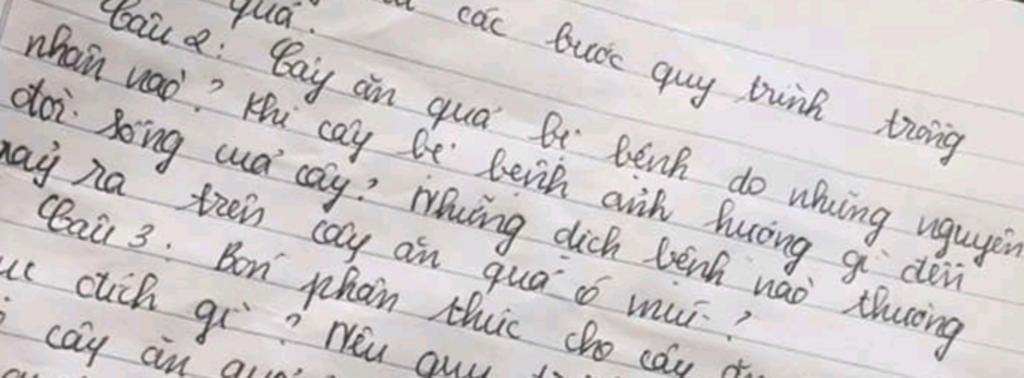 các bước quy trình trồng
quả.
Câu 2: Cây ăn quả bị bệnh do những nguyên
nhân nào? Khi cây bị bệnh ảnh hưởng gì đến
đời sống của cây? Những dịch bệnh nào thường
xảy ra trên cây ăn quả ở
Câu 3: Bón phân thúc cho cây ăn
đích gì? Nêu quy
cây ăn quả